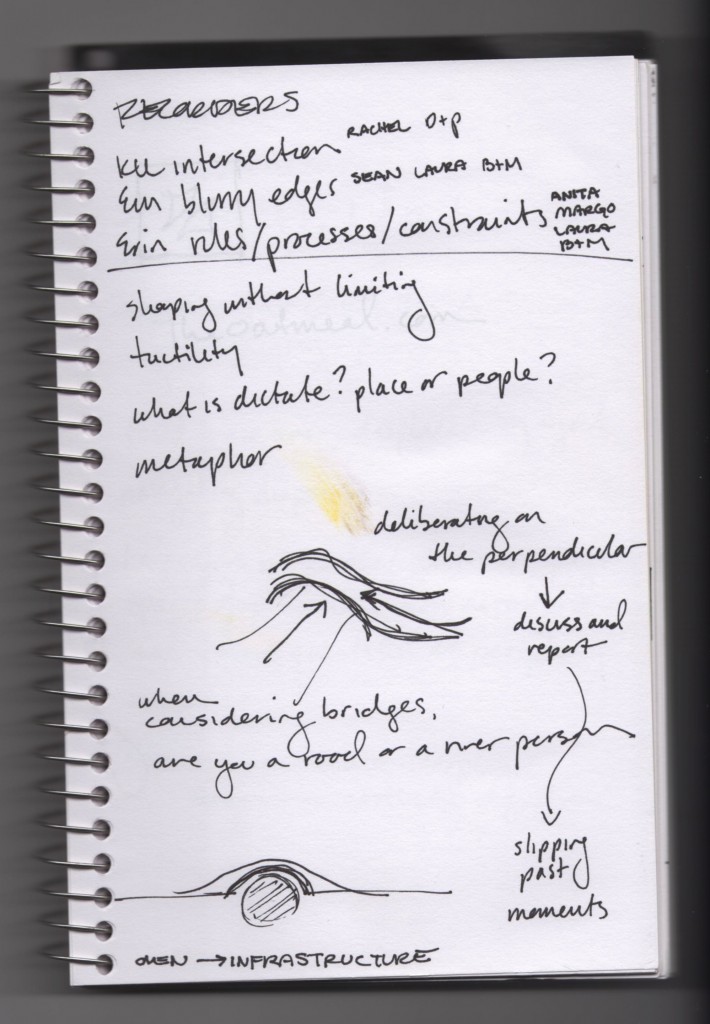 RECORDERS
intersection RACHEL O+P
Erin blurry edges SEAN LAURA B+M
Erin rules/processes/constraints ANITA
MARGO
LAURA
B+M
shaping without limiting
theoatmeal.com
tactility
what is dictate? place or people?
metaphor
deliberating on
the perpendicular
discuss and
report
when
considering bridges,
are you a road or a river person
slipping
past
moments
OWEN → INFRASTRUCTURE